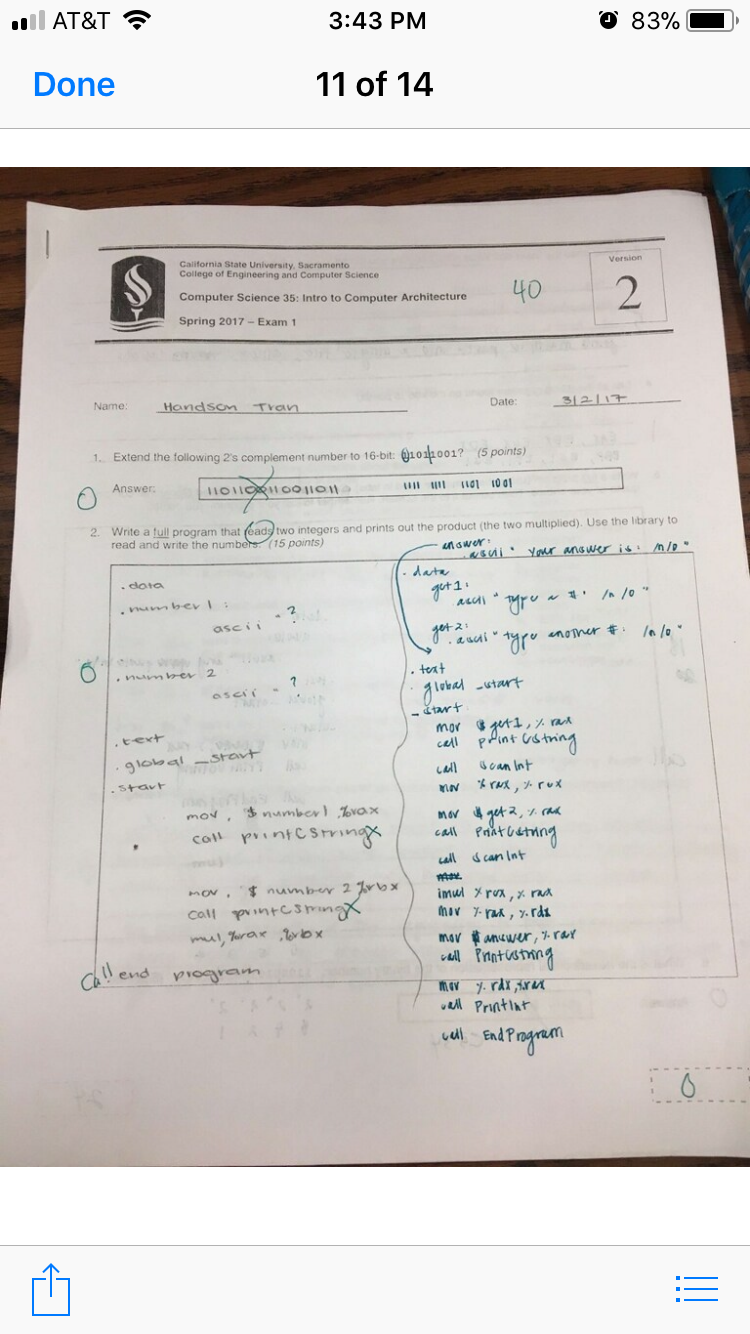 AT&T 3:43 PM 83%
Done 11 of 14
California State University, Sacramento
College of Engineering and Computer Science
Computer Science 35: Intro to Computer Architecture
Spring 2017 – Exam 1
40
Version
2
Name: Handson Tran Date: 3/2/17
1. Extend the following 2's complement number to 16-bit: 11011001? (5 points)
0
Answer: 1101100110011011 1111 1111 1101 1001
2. Write a full program that reads two integers and prints out the product (the two multiplied). Use the library to
read and write the numbers. (15 points)
0
.data
.number1:
ascii "?
.number 2
ascii "?
.text
.global _start
.start
mov, $number1,%rax
call printCString x
mov, $ number 2 %rbx
call printCString x
mul,%rax,%rbx
Call end program
answer:
.ascii " your answer is: /n/0"
.data
get1:
ascii "type a #: /n /0"
get2:
.ascii "type another #: /n/0"
.text
global _start
_start
mov $get1, %rax
call printCstring
call scanInt
mov %rax, %rcx
mov $get2, %rax
call PrintCstring
call scanInt
imul %rcx, %rax
mov %rax, %rdx
mov $answer, %rax
call PrintCstring
mov %rdx,%rax
call PrintInt
call EndProgram
0